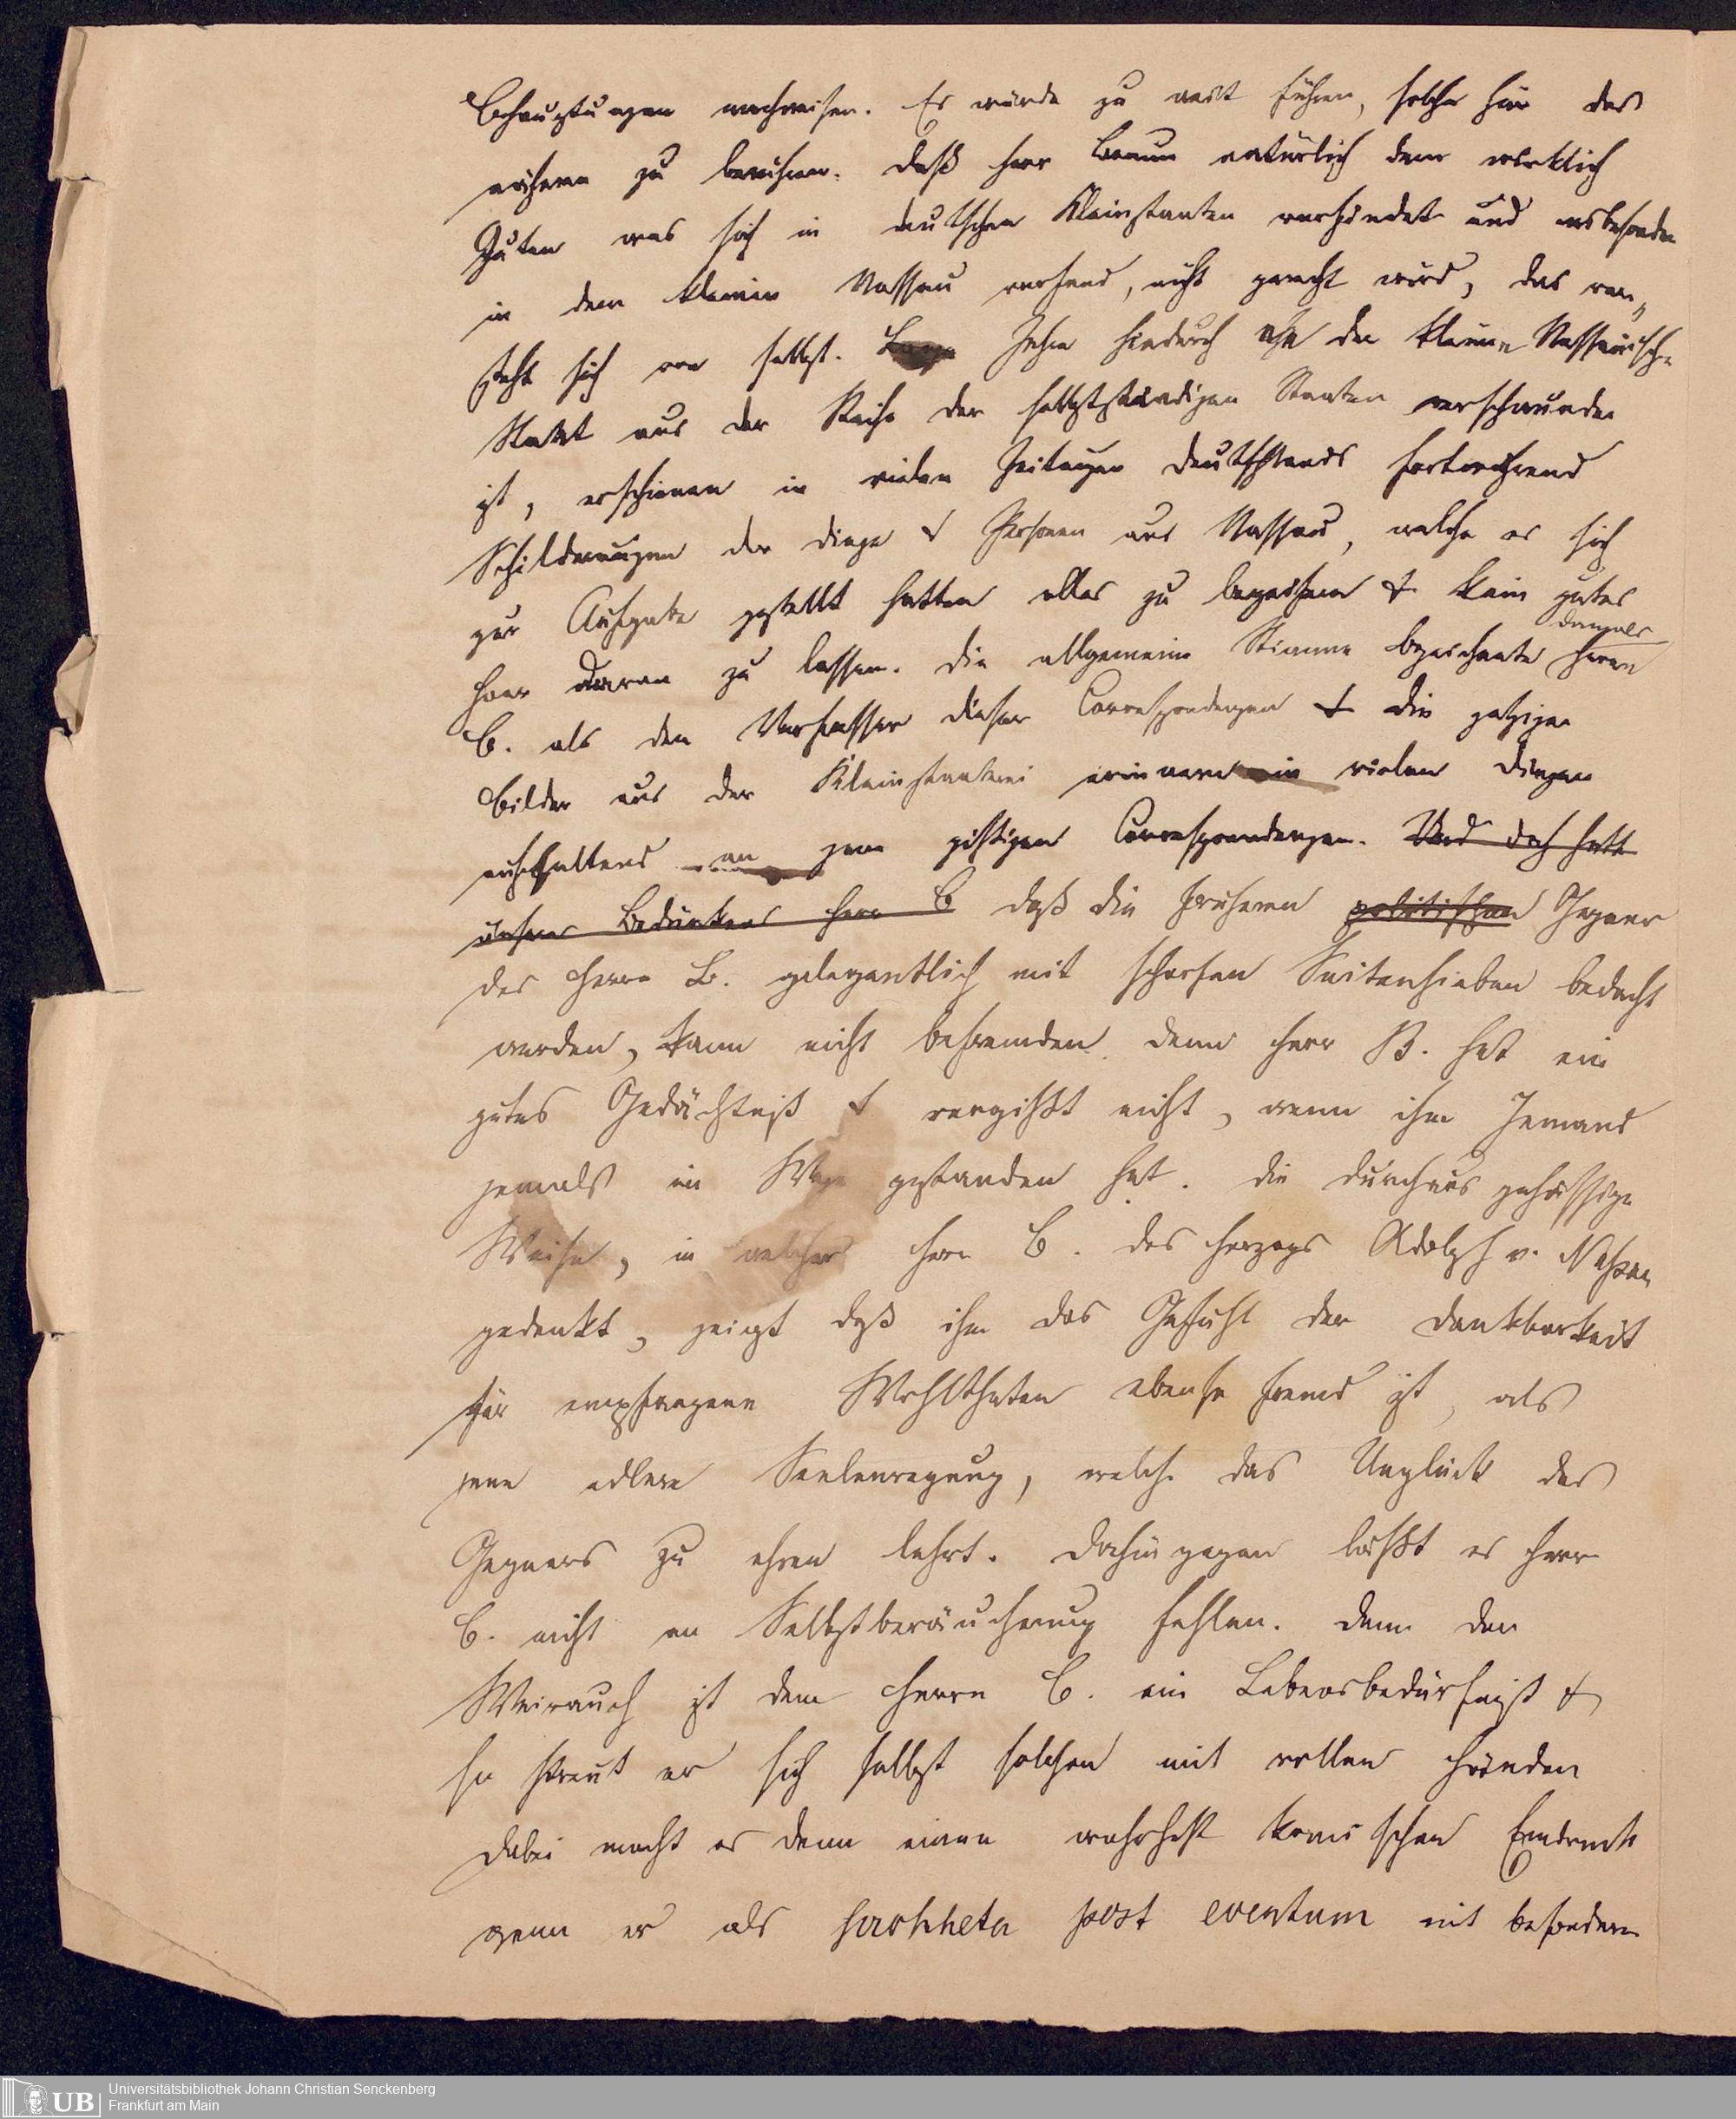 Behauptungen nachweisen. Es würde zu weit führen, solche hier des
näheren zu berühren. Daß Herr Braun natürlich dem wirklich
Guten was sich in deutschen Kleinstaaten vorfindet und insbesondere
in dem kleinen Nassau vorfand, nicht gerecht wird, das ver„
steht sich von selbst. Jahre hindurch ehe der kleine Nassauische
Staat aus der Reihe der selbstständigen Staaten verschwunden
ist, erschienen in vielen Zeitungen Deutschlands fortwährend
Schilderungen der Dinge & Personen aus Nassau, welche es sich
zur Aufgabe gestellt hatten alles zu begeifern & kein gutes
damals
Haar daran zu lassen. Die allgemeine Stimme bezeichnete Herrn
B. als den Verfasser dieser Correspondenzen & die jetzigen
Bilder aus der Kleinstaaterei erinnern in vielen Dingen
auffallend an jene giftigen Correspondenzen. Und doch hatt
unseres Bedünkens Herr B daß die früheren politischen Gegner
des Herrn B. gelegentlich mit scharfen Seitenhieben bedacht
werden, kann nicht befremden denn Herr B. hat ein
gutes Gedächtniß & vergißt nicht, wenn ihm Jemand
jemals im Wege gestanden hat. Die durchaus gehässige
Weise, in welcher Herr B. des Herzogs Adolph v. Nassau
gedenkt, zeigt daß ihm das Gefühl der Dankbarkeit
für empfangene Wohlthaten ebenso fremd ist, als
jene edlere Seelenregung, welche das Unglück des
Gegners zu ehren lehrt. Dahingegen läßt es Herr
B. nicht an Selbstberäucherung fehlen. Denn der
Weirauch ist dem Herrn B. ein Lebensbedürfniß &
so streut er sich selbst solchen mit vollen Händen
Dabei macht es denn einen wahrhaft komischen Eindruck
wenn er als propheta post eventum mit besonderer
Universitätsbibliothek Johann Christian Senckenberg
Frankfurt am Main
UB